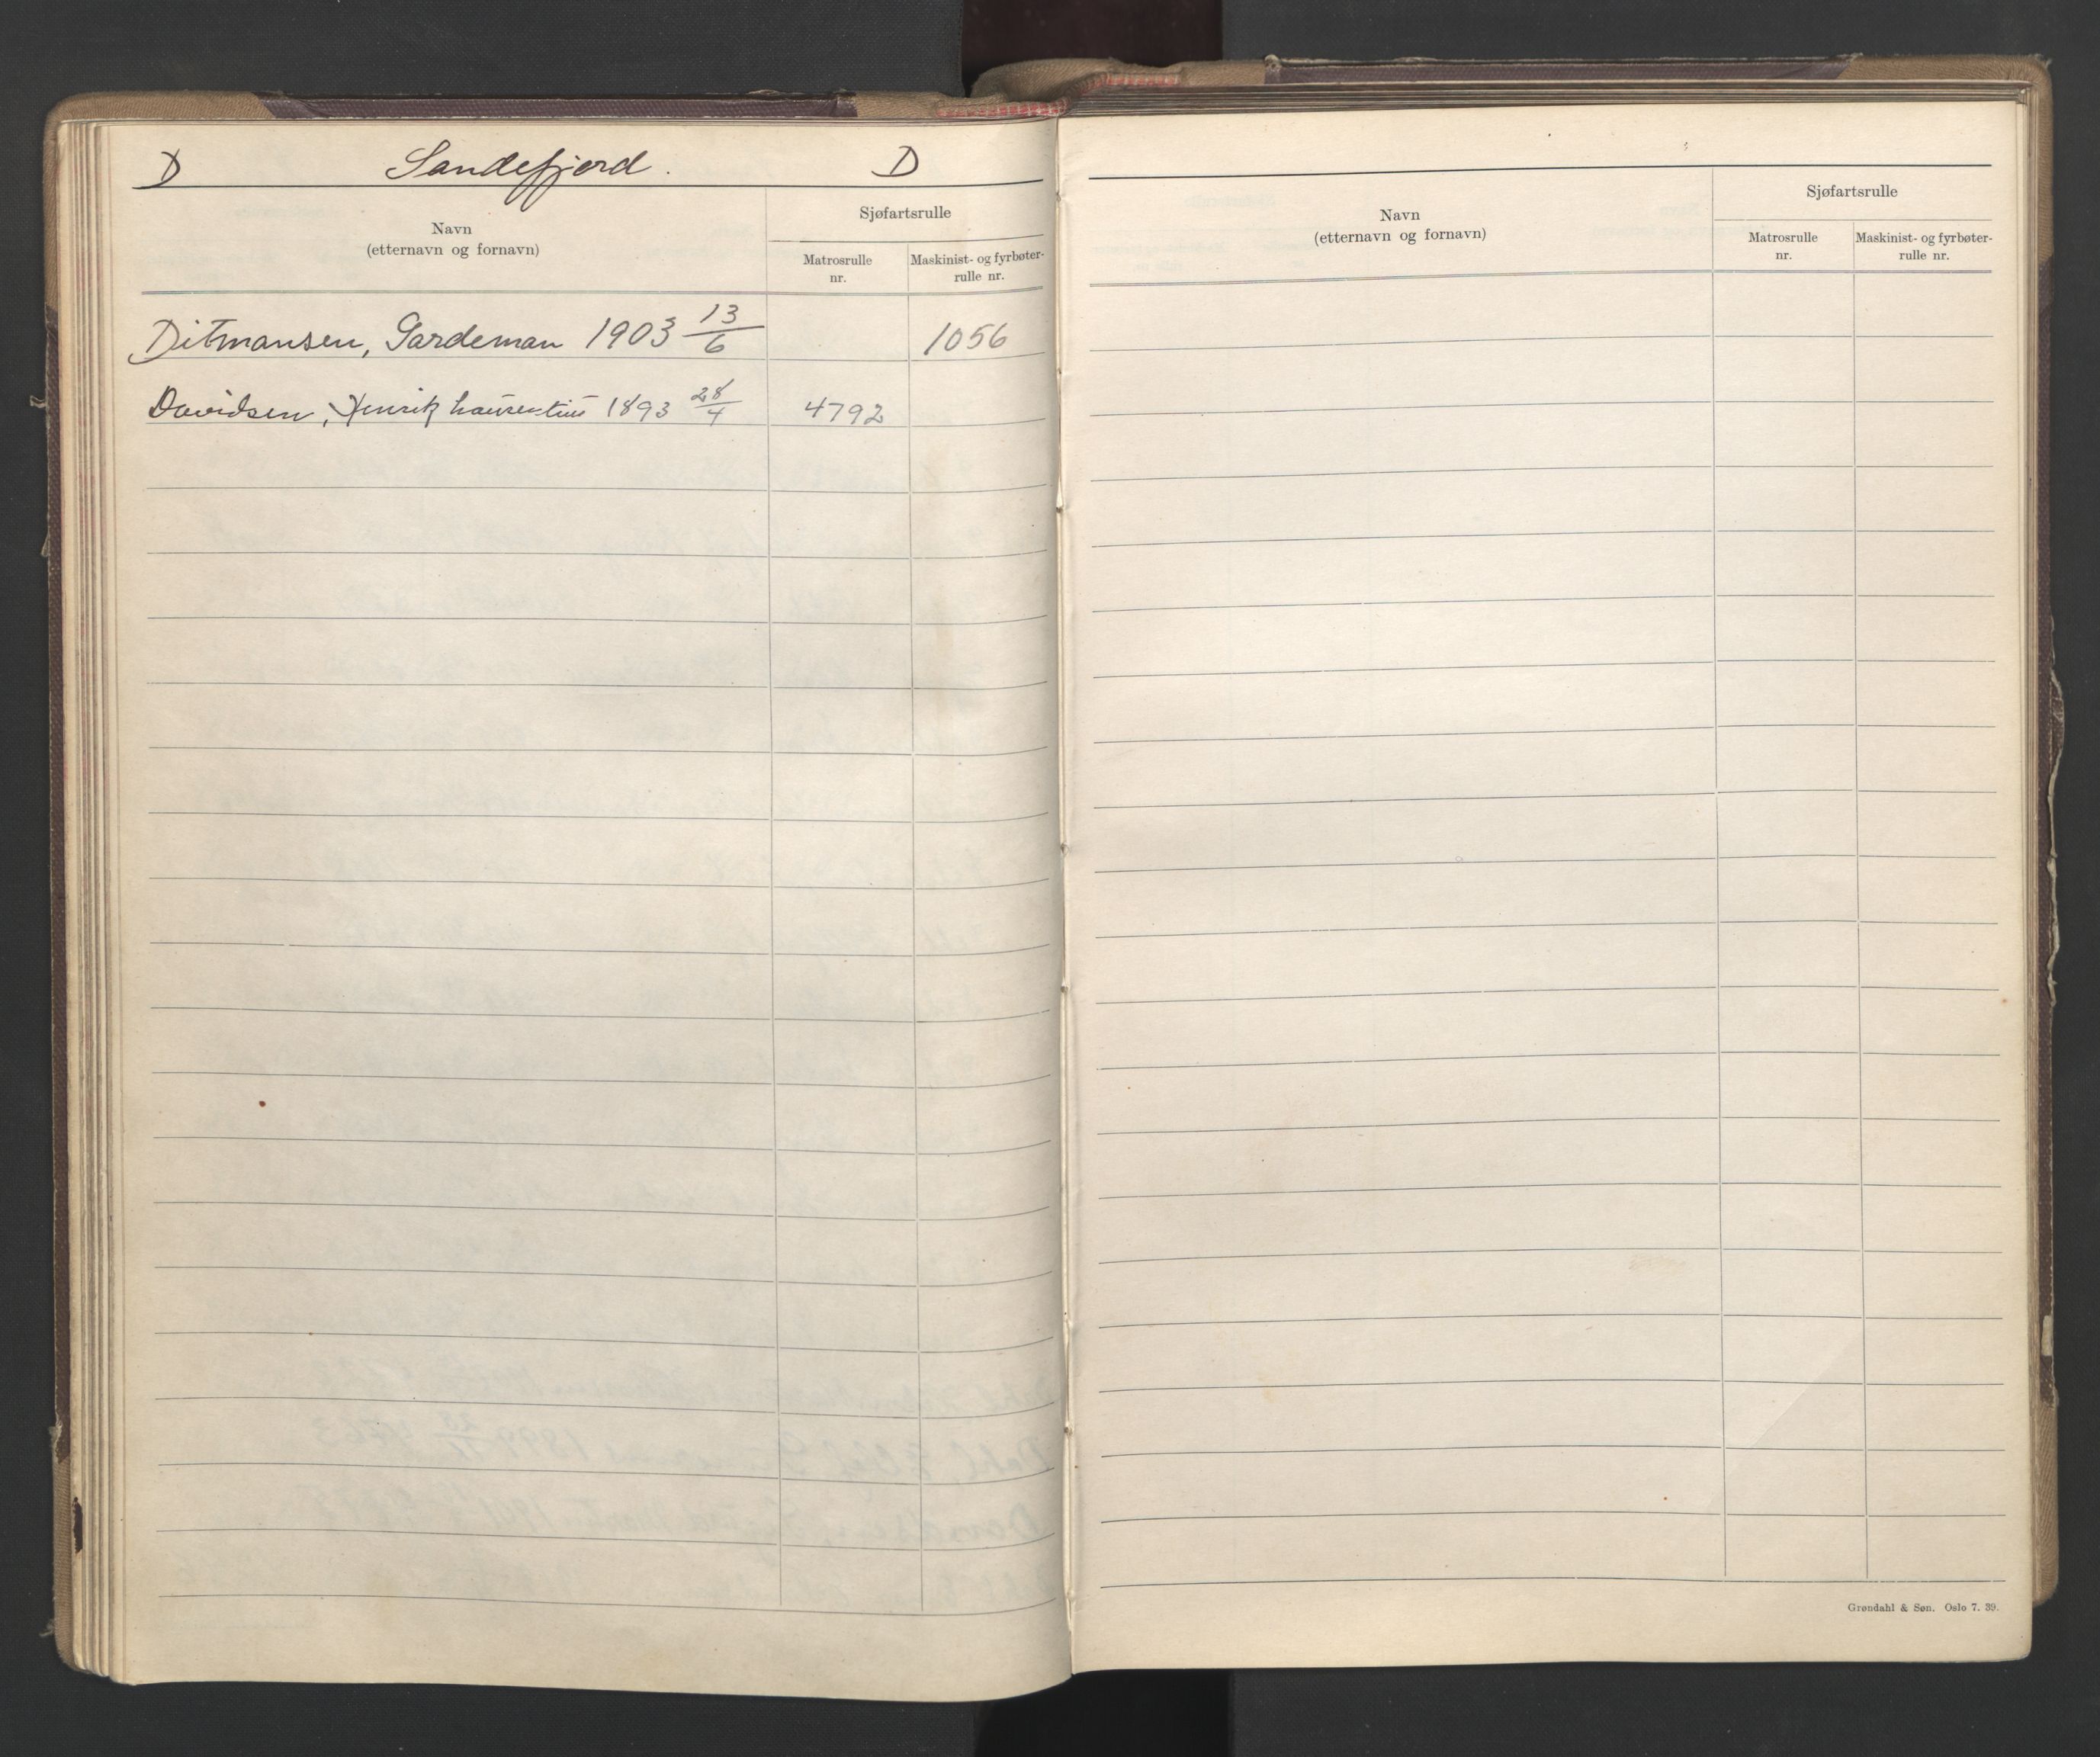 D Sandefjord. D
Navn
(etternavn og fornavn)
Sjøfartsrulle
Matrosrulle
nr.
Maskinist- og fyrbøter-
rulle nr.
Ditmansen, Gardeman 1903 13/6 1056
Davidsen, Henrik Laurentius 1893 28/4 4792
Navn
(etternavn og fornavn)
Sjøfartsrulle
Matrosrulle
nr.
Maskinist- og fyrbøter-
rulle nr.
Grøndahl & Søn. Oslo 7. 39.